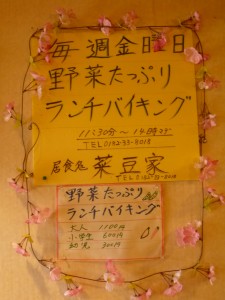 毎週金曜日
野菜たっぷり
ランチバイキング
11:30分～14時まで
TEL 0182-33-8018
居食処 菜豆家
野菜たっぷり
ランチバイキング
大人 1100円
小学生 600円
幼児 300円